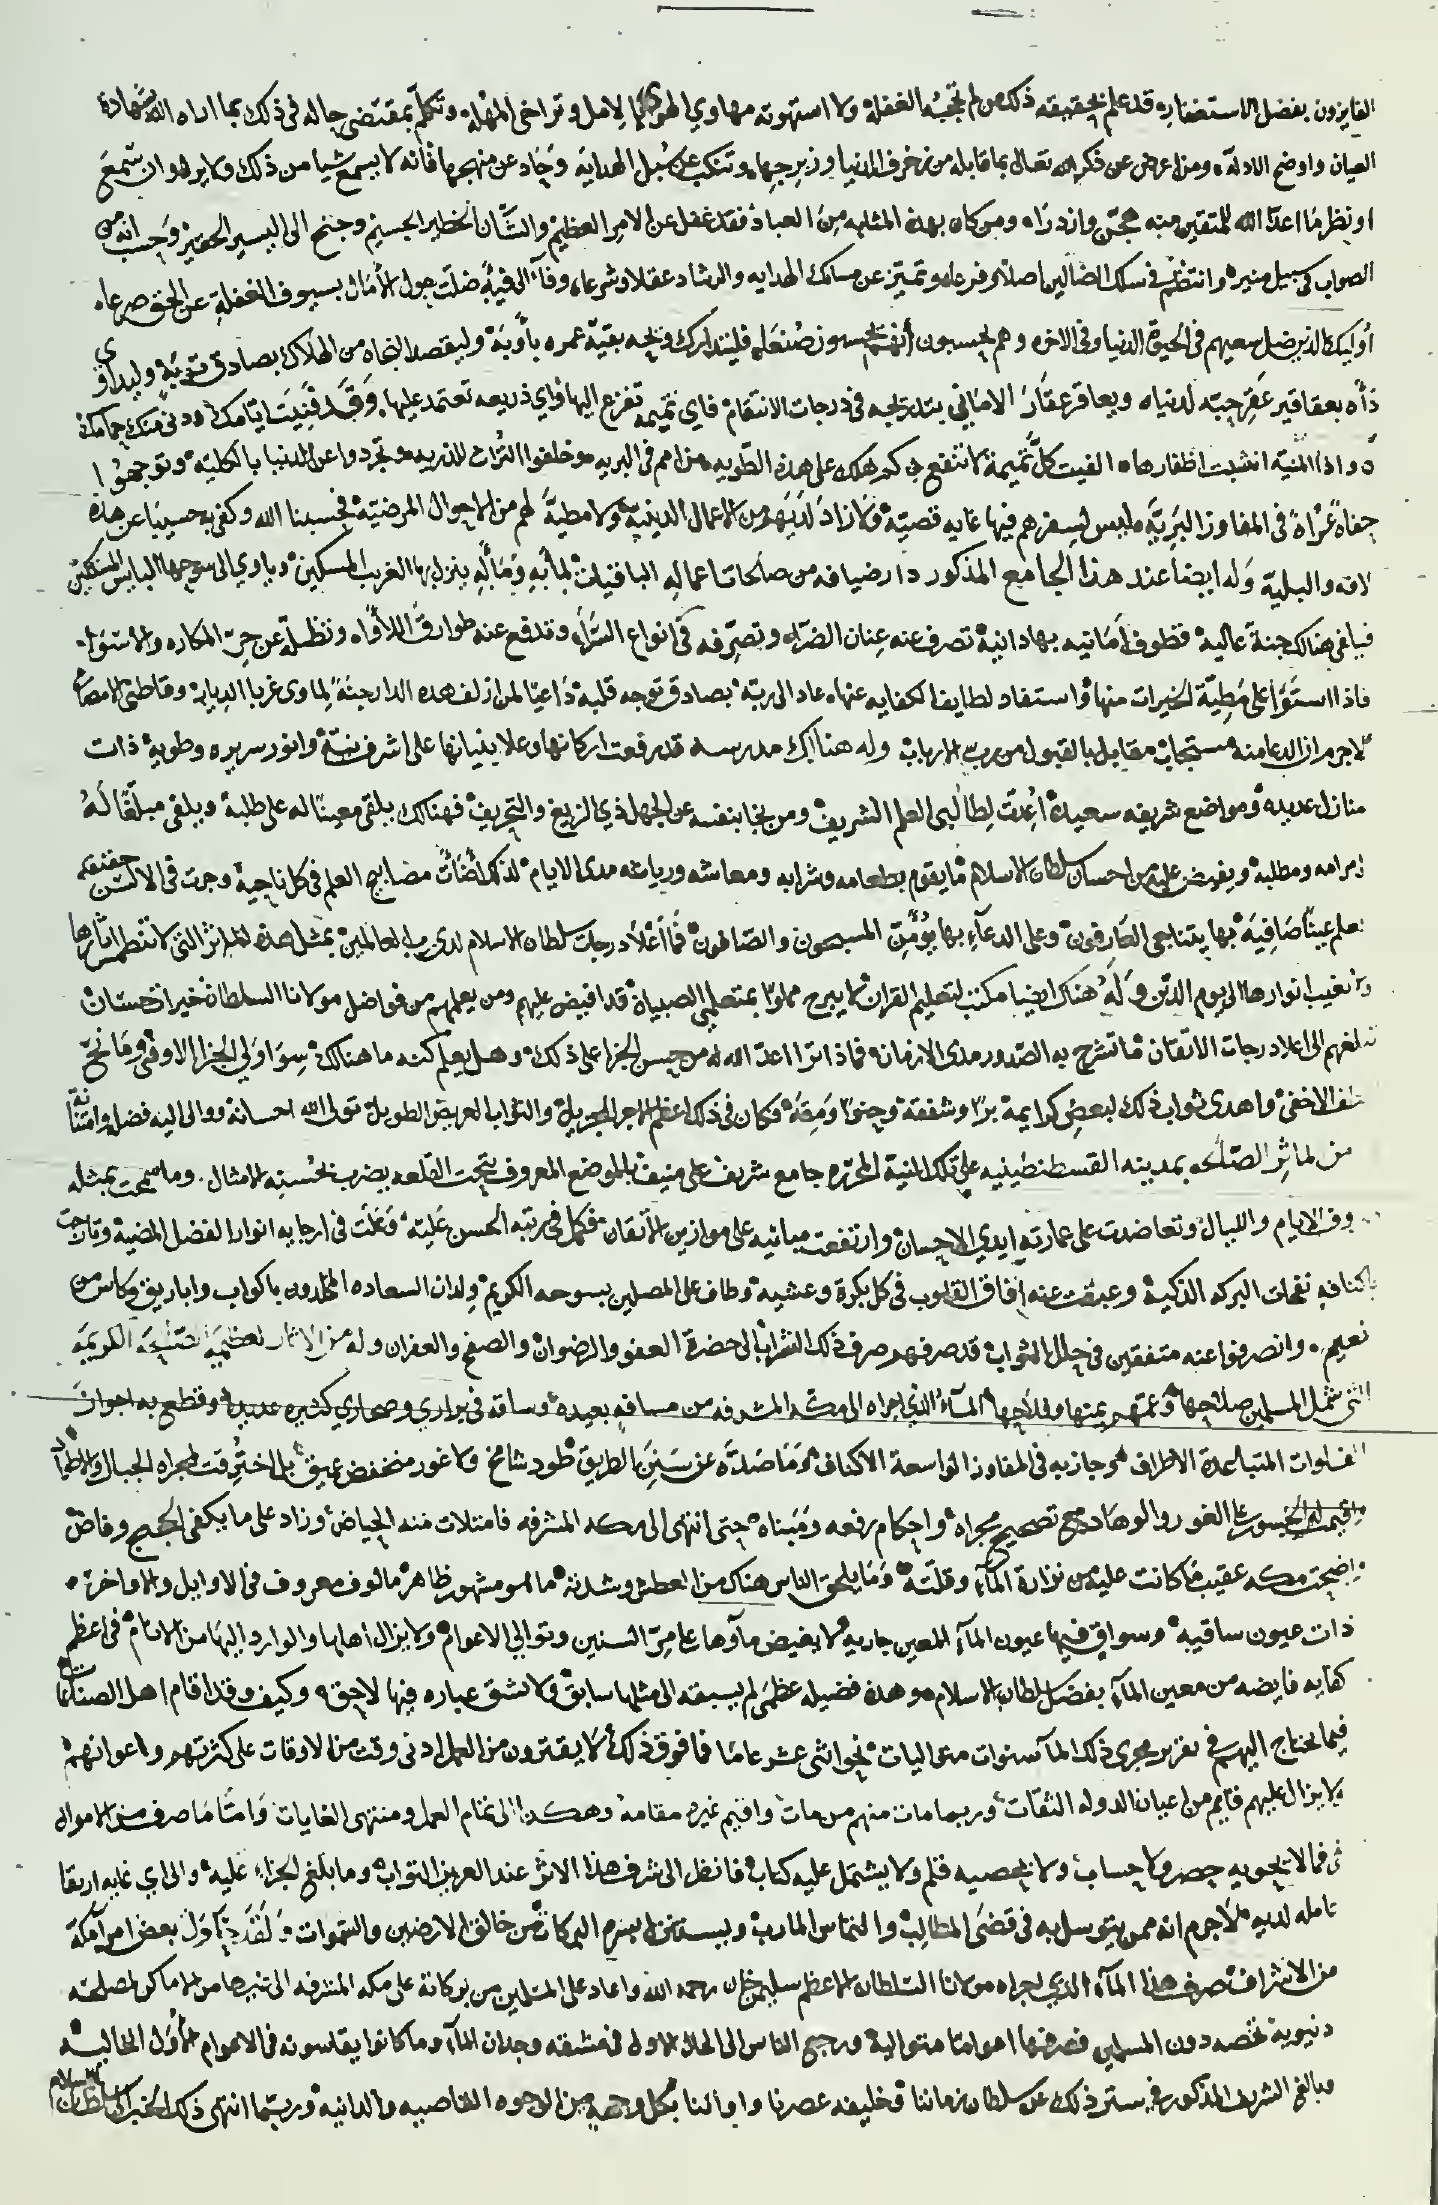 الفايزون بفضل الاستغفار قد علم بحقيقة ذلك من لم تحجبه الغفلة ولا استهوته مهاوي الهوى لا الامل وتراخى المهلة وتكلم بمقتضى حاله في ذلك بما اراه الله شهادة
العيان واوضح الادلة ومن اعرض عن ذكر الله تعالى بما قابله من زخرف الدنيا وزبرجها وتنكب عن سبل الهداية وحاد عن منهجها فانه لا يسمع شيا من ذلك ولا يراه وان سمع
او نظر ما اعد الله للمتقين منه مجن وازدراه ومن كان بهذه المثابه من العباد فقد غفل عن الامر العظيم والشان الخطير الجسيم وجنح الى اليسير الحقير وحسب انه من
الصواب في سبيل منير وانتظم في سلك الضالين اصلا وفرعا وتميز عن مسالك الهدايه والرشاد عقلا وشرعا وفآء الى فية ضلت حول الامان بسيوف الغفلة عن الحق صرعاه
اوليك الذين ضل سعيهم في الحيوة الدنيا وفي الاخره وهم يحسبون انهم يحسنون صنعا فليتدارك بقية عمره بأوبة وليقصد النجاه من الهلاك بصادق توبة وليداوي
دآه بعقاقير عقر حبه لدنياه ويعاقر عقار الاماني بتدريجه في درجات الانتقام فاي تميمة تفزع اليها واي ذريعه تعتمد عليها وقد فنيت ايامك ودنى منك حمامك
ه واذا المنية انشبت اظفارها ه الفيت كل تميمة لا تنفع ه كم هلك على هذه الطويه من امم في البريه وخلفوا التراث للذريه وتجردوا عن الدنيا بالكليه وتوجهوا
حفاة عراة في المفاوز البرية ليس لسفرهم فيها غايه قصية ولا زاد لديهم من الاعمال الدينيه ولا مطية لهم من الاحوال المرضية فحسبنا الله وكفى به حسيبا عن هذه
الافه والبلية وله ايضا عند هذا الجامع المذكور دار ضيافه من صالحات اعماله الباقيات لمأبه ومآله ينزل بها الغريب المسكين وياوي الى سوحها البايس المستكين
فيلفي هنالك جنة عالية قطوف امانيه بها دانية تصرف عنه عنان الضرآء وتصرفه في انواع السرآء وتدفع عنه طوارق اللاواه وتظله عن حر المكاره والاسواء
فاذا استوا على مطية الخيرات منها واستفاد لطايف الكفايه عنها عاد الى ربه بصادق توجه قلبه داعيا لمن ازلف هذه الدار جنة لماوى غربا الديار وقاطني الامصار
لا جرم ان الدعا منه مستجاب مقابل بالقبول من رب الارباب وله هنالك مدرسه قد رفعت اركانها وعلا بنيانها على اشرف نية وانور سريره وطوية ذات
منازل عديده ومواضع شريفه سعيده اعدت لطالبي العلم الشريف ومن نجا بنفسه عن الجهل ذي الزيغ والتحريف فهنالك يلقى معينا له على طلبه ويلقى مبلغا له
مرامه ومطلبه ويفيض عليه من احسان سلطان الاسلام ما يقوم بطعامه وشرابه ومعاشه ورياشه مدى الايام لذلك اضأت مصابيح العلم في كل ناحية وجرت في الالسن حقيقة
العلم عينا صافية بها يتناجى العارفون وعلى الدعآء بها يؤمن المسبحون والصافون فما أعلا درجات سلطان الاسلام لدى رب العالمين بمثل هذه المآثر التي لا تنطمس اثارها
ولا تغيب انوارها الى يوم الدين وله هناك ايضا مكتب لتعليم القران لا يبرح مملوا بمتعلمي الصبيان قد افيض عليهم ومن يعلمهم من فواضل مولانا السلطان خيرات حسان
تبلغهم الى اعلا درجات الاتقان ما تشرح به الصدور مدى الازمان فماذا ترا اعد الله له من حسن الجزا على ذلك وهل يعلم كنه ما هنالك سوا ولي الجزا الاوفى ومانح
اللطف الاخفى واهدى ثواب ذلك لبعض كرايمه برا وشفقة وحنوا ومقة فكان في ذلك اعظم الاجر الجزيل والثواب العريض الطويل تولى الله احسانه ووالى اليه فضله وامتنانه
من المآثر الصالحه بمدينه القسطنطينيه على تلك النية المحرره جامع شريف علي منيف بالموضع المعروف بتحت القلعه يضرب بحسنه الامثال وما سمحت بمثله
صروف الايام والليال وتعاضدت على عمارته ايدي الاحسان وارتفعت مبانيه على موازين الاتقان فكمل في رتبه الحسن عليه وعلت في ارجايه انوار الفضل المضية وتارجت
باكنافه نفحات البركه الذكية وعبقت عنه افاق القلوب في كل بكرة وعشيه وطاف على المصلين بسوحه الكريم ولدان السعاده المخلدون باكواب واباريق وكاس من
نعيم وانصرفوا عنه متفقين في حلل الثواب قد صرفهم صرف ذلك الشراب الى حضرة العفو والرضوان والصفح والغفران وله من الاثار العظيمه الكريمه
التي شمل المسلمين صلاحها وعمهم يمنها وفلاحها المآء الذي اجراه الى مكه المشرفه من مسافه بعيده وساقه في براري وصحاري كثيره عديده وقطع به اجواز
الفلوات المتباعدة الاطراف وجاز به في المفاوز الواسعة الاكناف وما صده عن سنن الطريق طود شامخ ولا غور منخفض عميق بل اخترقت لمجراه الجبال والاطواد
واقيمت له الجسور على الغور والوهاد مع تصحيح مجراه واحكام رفعه ومبناه حتى انتهى الى مكه المشرفه فامتلات منه الحياض وزاد على ما يكفي الحجيج وفاض
واضحت مكه عقيب ما كانت عليه من نزارة المآء وقلته وما يلحق الناس هناك من العطش وشدته ما هو مشهور ظاهر مالوف معروف في الاوايل والاواخر
ذات عيون ساقيه وسواق فيها عيون المآء المعين جاريه لا يغيض ماوها على مر السنين وتوالي الاعوام ولا يزال اهلها والوارد اليها من الانام في اعظم
كفايه فايضه من معين المآء بفضل سلطان الاسلام وهذه فضيله عظمى لم يسبقه الى مثلها سابق ولا شق غباره فيها لاحق وكيف وقد اقام اهل الصناعات
فيما يحتاج اليهم في تقرير مجرى ذلك المآ سنوات متواليات نحو اثنى عشر عاما فما فوق ذلك لا يفترون من العمل ادنى وقت من الاوقات على كثرتهم واعوانهم
ولا يزال عليهم قايم من اعيان الدوله الثقات وربما مات منهم من مات واقيم غيره مقامه وهكذا الى تمام العمل ومنتهى الغايات واما ما صرف من الاموال
فمما لا يحويه حصر ولا حساب ولا يحصيه قلم ولا يشتمل عليه كتاب فانظر الى شرف هذا الاثر عند العزيز التواب وما يبلغ الجزاء عليه والى اي غايه ارتقا
عامله لديه لا جرم انه ممن يتوسل به في قضى المطالب والتماس المارب ويستنزل بسره البركات من خالق الارضين والسموات ولقد حاول بعض امرآ مكه
من الاشراف صرف هذا المآء الذي اجراه مولانا السلطان الاعظم سليم خان رحمه الله واعاد على المسلمين من بركاته على مكه المشرفه الى غيرها من الاماكن لمصلحة
دنيوية تخصه دون المسلمين فصرفها اعواما متواليه ورجع الناس الى الحال الاول في مشقه وجدان المآء وما كانوا يقاسونه في الاعوام الاول الخاليه
وبالغ الشريف المذكور في ستر ذلك عن سلطان زماننا وخليفه عصرنا واواننا بكل وجه من الوجوه القاصيه والدانيه وربما انتهى ذلك الخبر الى سلطان الاسلام